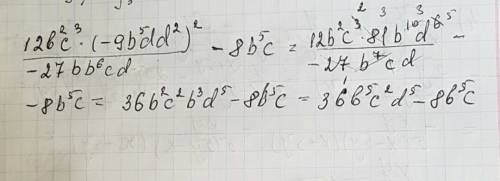 12b²c³ · (-9b⁵dd²)² / -27bb⁶cd - 8b⁵c = 12b²c³ · 81b¹⁰d⁶ / -27b⁷cd -
- 8b⁵c = 36b²c²b³d⁵ - 8b⁵c = 36b⁵c²d⁵ - 8b⁵c